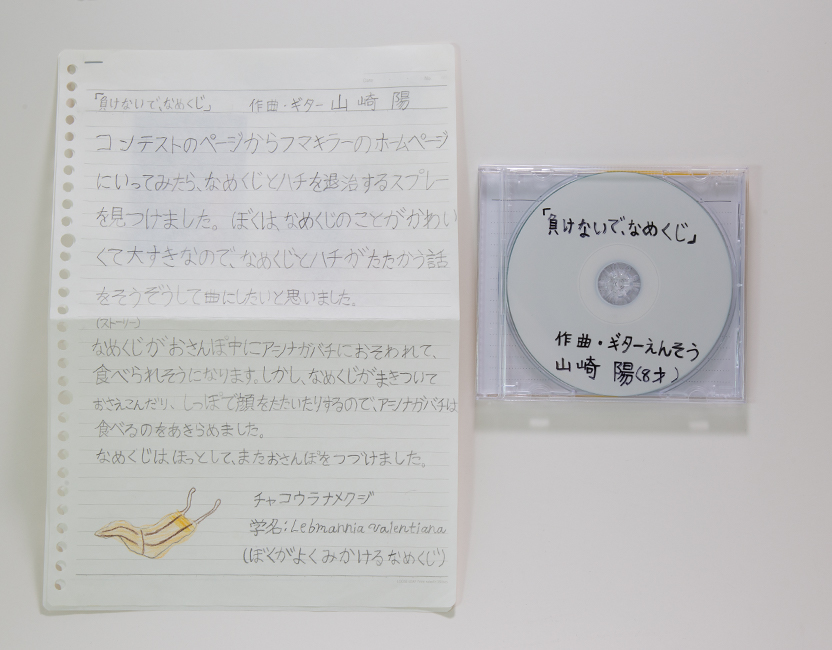 「負けないで、なめくじ」　作曲・ギター 山崎 陽
コンテストのページからフマキラーのホームページ
にいってみたら、なめくじとハチを退治するスプレー
を見つけました。ぼくは、なめくじのことがかわい
くて大すきなので、なめくじとハチがたたかう話
をそうぞうして曲にしたいと思いました。
(ストーリー)
なめくじがおさんぽ中にアシナガバチにおそわれて、
食べられそうになります。しかし、なめくじがまきついて
おさえこんだり、しっぽで顔をたたいたりするので、アシナガバチは
食べるのをあきらめました。
なめくじは、ほっとして、またおさんぽをつづけました。
チャコウラナメクジ
学名:Lebmannia valentiana
(ぼくがよくみかけるなめくじ)
「負けないで、なめくじ」
作曲・ギターえんそう
山崎 陽(8才)